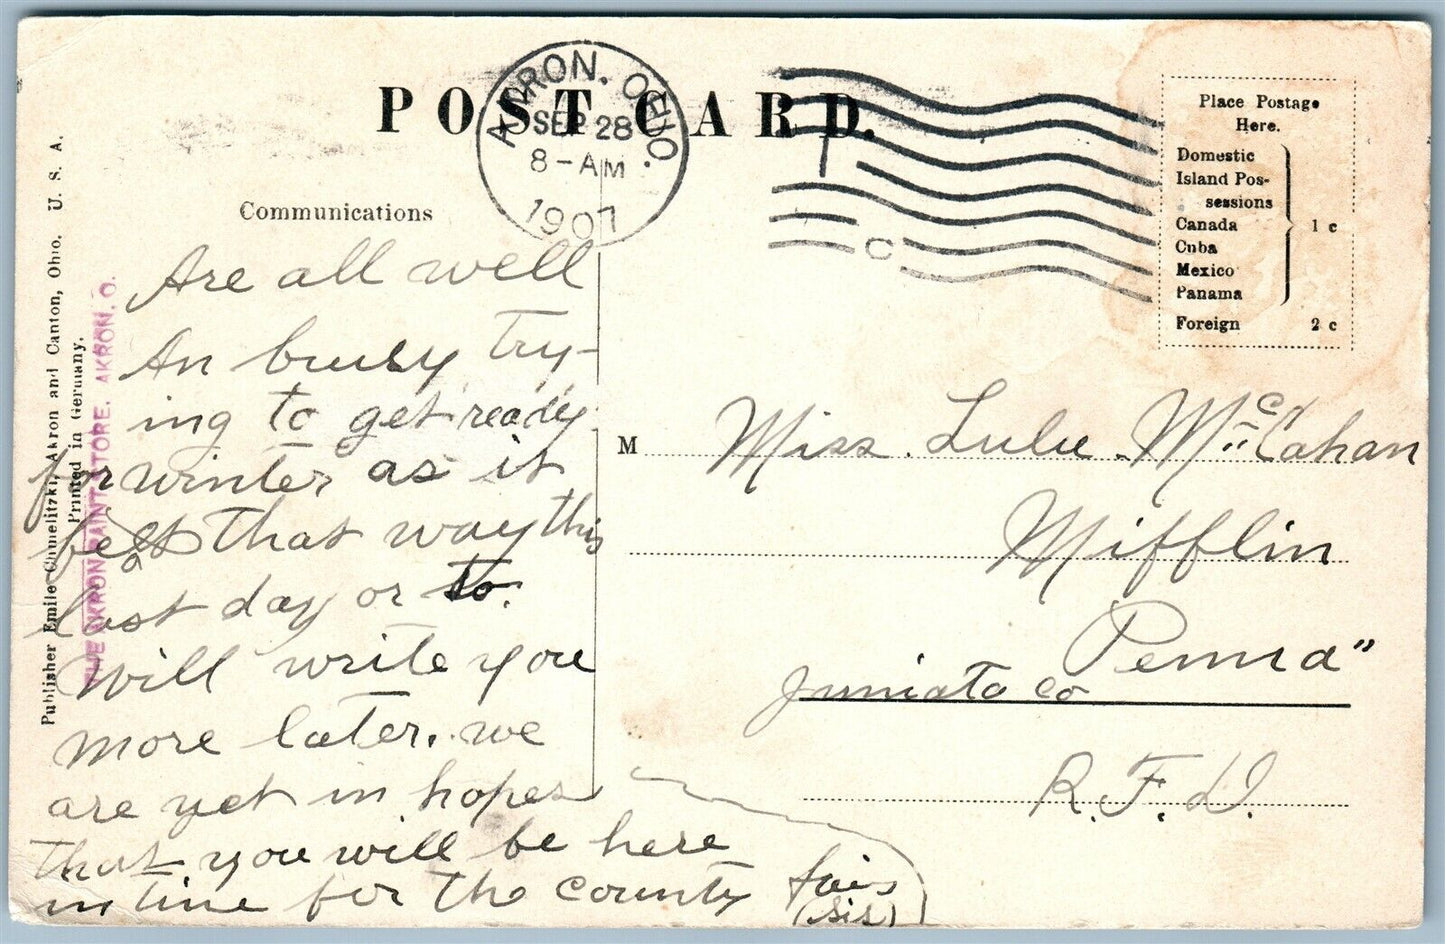 POST CARD.
AKRON, OHIO.
SEP 28
8-AM
1907
C
Place Postage
Here.
Domestic
Island Pos-
sessions
Canada
Cuba
Mexico
Panama
1 c
Foreign 2 c
Communications
Are all well
An busy try-
ing to get ready
for winter as it
best that way this
last day or to.
Will write you
more later. we
are yet in hopes
that you will be here
in time for the county fair
(Sis)
M Miss. Lulu McCahan
Mifflin
Penna"
Juniata Co
R.F.D.
Publisher Emile Chmelitzki, Akron and Canton, Ohio. U. S. A.
Printed in Germany.
THE AKRON PAINT STORE, AKRON, O.